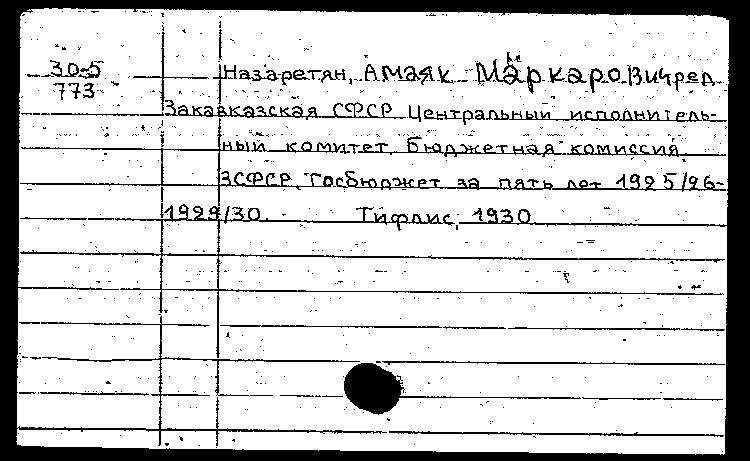 30-5
773
Назаретян, Амаяк Маркарович, ред.
Закавказская СФСР Центральный исполнитель-
ный комитет. Бюджетная комиссия.
ЗСФСР, Госбюджет за пять лет 1925/26-
1929/30. Тифлис, 1930.